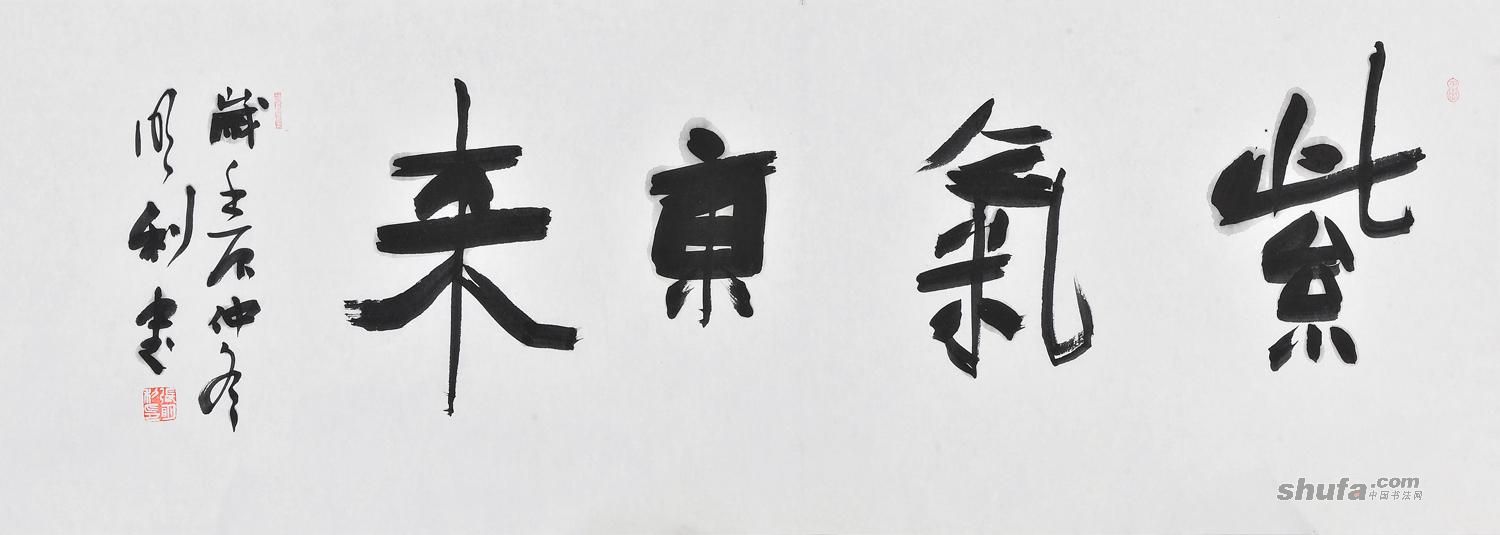 紫氣東来
歲壬辰仲冬
明利書
shufa.com
中国书法网